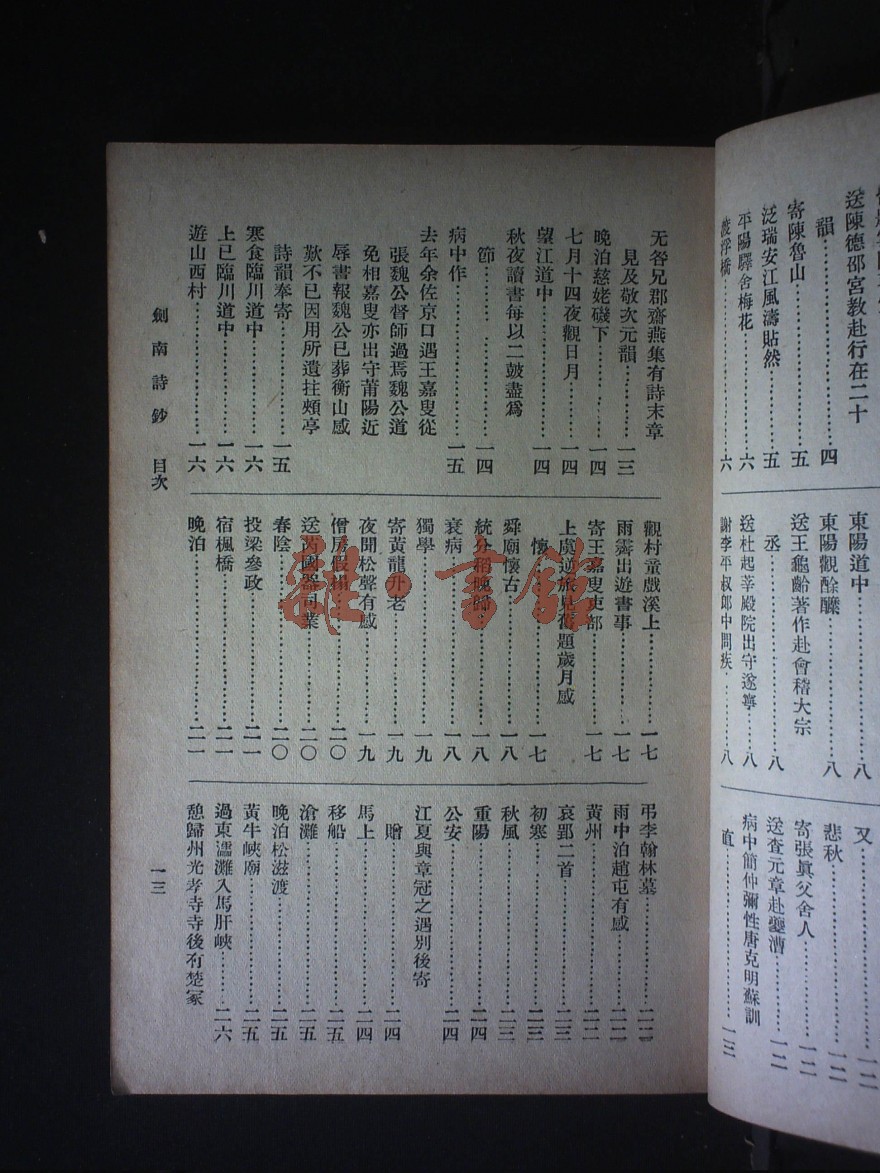 送陳德邵宮教赴行在二十
韻……四
寄陳魯山……五
泛瑞安江風濤貼然……五
平陽驛舍梅花……六
渡浮橋……六
東陽道中……八
東陽觀酴醿……八
送王龜齡著作赴會稽大宗
丞……八
送杜起莘殿院出守遂寧……八
謝李平叔郎中問疾……八
又……一二
悲秋……一二
寄張眞父舍人……一二
送查元章赴夔漕……一二
病中簡仲彌性唐克明蘇訓
直……一三
无咎兄郡齋燕集有詩末章
見及敬次元韻……一三
晚泊慈姥磯下……一四
七月十四夜觀日月……一四
望江道中……一四
秋夜讀書每以二鼓盡爲
節……一四
病中作……一五
去年余佐京口遇王嘉叟從
張魏公督師過焉魏公道
免相嘉叟亦出守莆陽近
辱書報魏公已葬衡山感
歎不已因用所遺拄頰亭
詩韻奉寄……一五
寒食臨川道中……一六
上巳臨川道中……一六
遊山西村……一六
觀村童戲溪上……一七
雨霽出遊書事……一七
寄王嘉叟吏部……一七
上虞逆旅見舊題歲月感
懷……一七
舜廟懷古……一八
統分稍晚歸……一八
衰病……一八
獨學……一九
寄黃龍升老……一九
夜聞松聲有感……一九
僧房假榻……二〇
送芮國器司業……二〇
春陰……二〇
投梁參政……二一
宿楓橋……二一
晚泊……二一
弔李翰林墓……二二
雨中泊趙屯有感……二二
黃州……二二
哀郢二首……二三
初寒……二三
秋風……二三
重陽……二四
公安……二四
江夏與章冠之遇別後寄
贈……二四
馬上……二四
移船……二五
滄灘……二五
晚泊松滋渡……二五
黃牛峽廟……二五
過東㶟灘入馬肝峽……二六
憩歸州光孝寺寺後有楚冢
劍南詩鈔 目次
一三
雜·書館